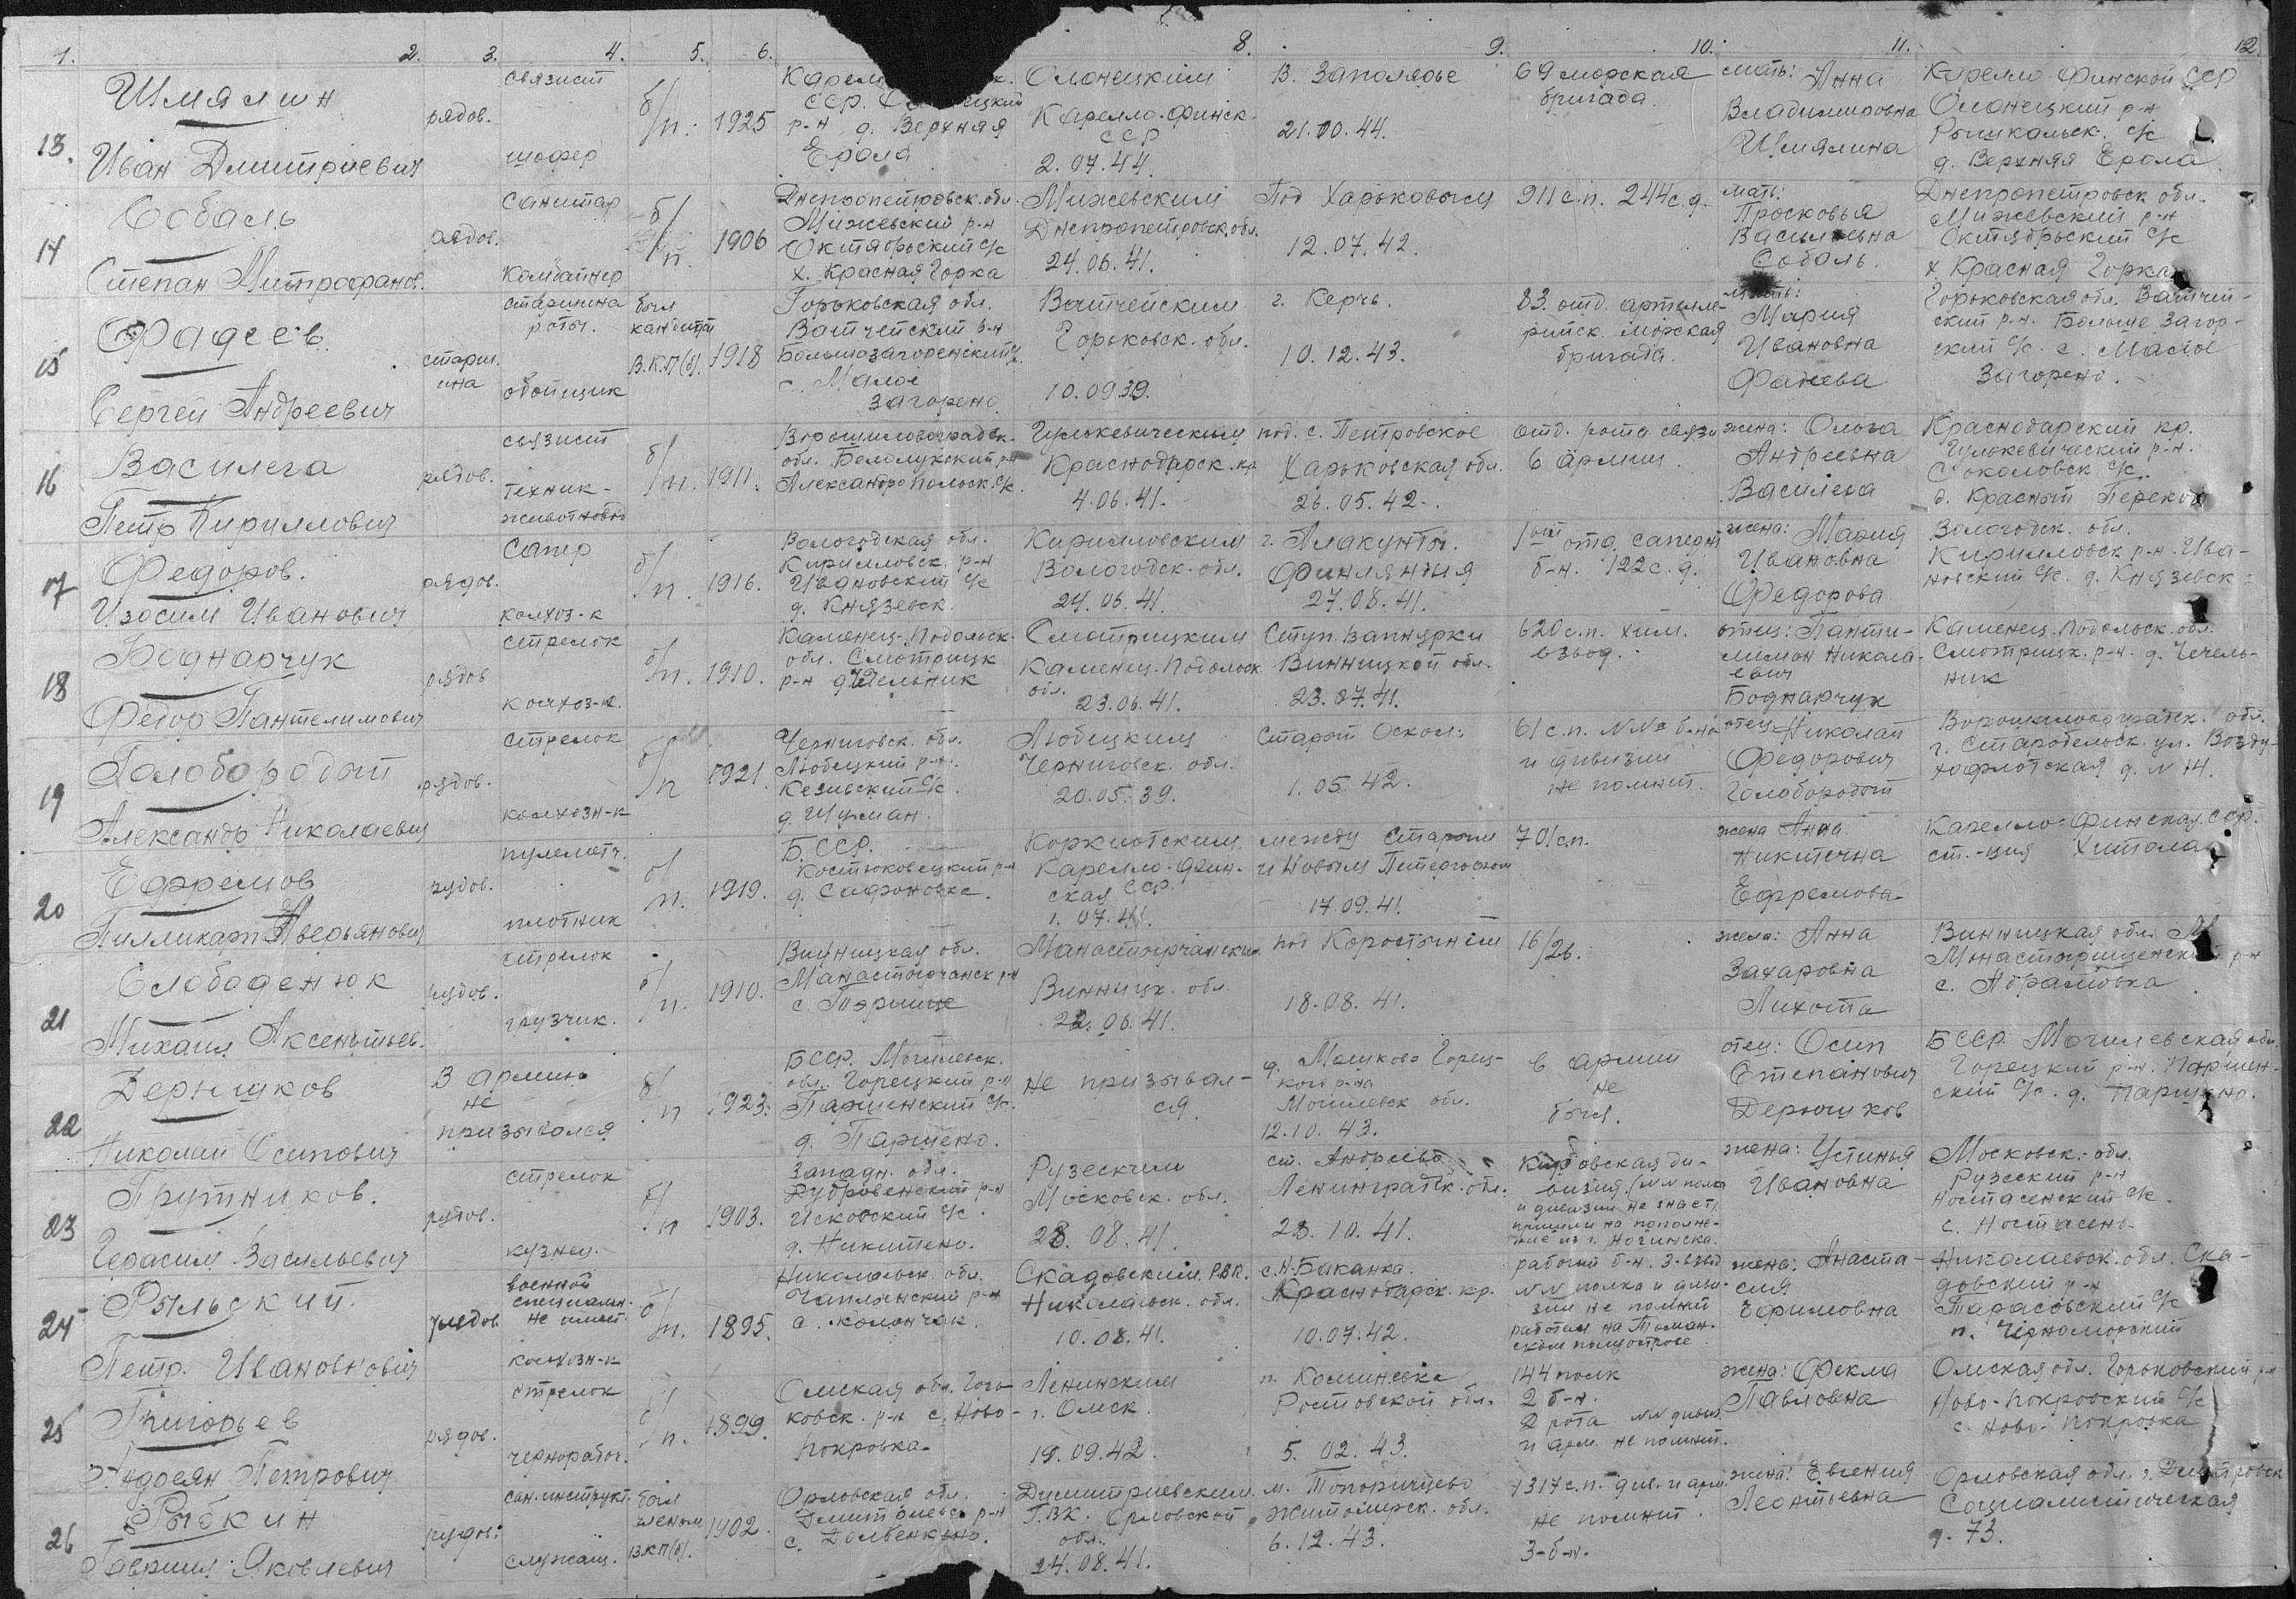 1. 2. 3. 4. 5. 6. 8. 9. 10. 11. 12.
13.
Шмялин
Иван Дмитриевич
рядов.
связист
шофер
б/п.
1925
Карел
ССР.
р-н д. Верхняя
Ерола
Олонецким
Карелло-финск.
ССР
2.07.44.
В. Заполярье
21.10.44.
69 морская
бригада.
мать: Анна
Владимировна
Шмялина
Карелло-Финской ССР
Олонецкий р-н
с/с
д. Верхняя Ерола
14
Соболь
Степан Митрофанов.
рядов.
санитар
комбайнер
б/п.
1906
Днепропетровск. обл.
Межевский р-н
Октябрьский с/с
х. Красная Горка
Межевским
Днепропетровск. обл.
24.06.41.
Под Харьковым
12.07.42.
911 с.п. 244 с.д.
мать:
Просковья
Васильевна
Соболь.
Днепропетровск обл.
Межевский р-н
Октябрьский с/с
х. Красная Горка
15
Фадеев
Сергей Андреевич
старш-
ина
старшина
роты.
обойщик
был
В.К.П(б).
1918
Горьковская обл.
Ватчейский р-н
с. Малое
Загорено
Ватчейским
Горьковск. обл.
10.09.39.
г. Керчь.
10.12.43.
83. отд. артилле-
рийск. морская
бригада.
мать:
Мария
Ивановна
Фадеева
Горьковская обл. Ватчей-
ский р-н. Больше Загор-
ский с/с. с. Малое
Загорено.
16
Василега
Петр Кириллович
рядов.
связист
техник-
б/п.
1911.
Ворошиловградск.
обл. Беломукский р-н
Александропольск. с/с.
Гулькевическим
Краснодарск. кр.
4.06.41.
под. с. Петровское
Харьковская обл.
26.05.42.
отд. рота связи
6 армии.
жена: Ольга
Андреевна
Василега
Краснодарский кр.
Гулькевический р-н.
Соколовск с/с.
д. Красный Перекоп
17
Федоров.
Изосим Иванович
рядов.
Сапер
колхоз-к
б/п.
1916.
Вологодская обл.
Кирилловск. р-н
Ивановский с/с
д. Князевск.
Кирилловским
Вологодск. обл.
24.06.41.
г. Алакунты.
Финляндия
27.08.41.
1ый отд. саперн
б-н. 122 с.д.
жена: Мария
Ивановна
Федорова
Вологодск. обл.
Кирилловск р-н. Ива-
новский с/с. д. Князевск.
18
Боднарчук
Федор Пантелимович
рядов
стрелок
колхоз-к.
б/п.
1910.
Каменец-Подольск.
обл. Смотрицк
р-н
Смотрицким
Каменец-Подольск
обл.
23.06.41.
Ступ. Вапнярки
Винницкой обл.
23.07.41.
620 с.п. хим.
взвод.
отец: Панти-
лимон Никола-
евич
Боднарчук
Каменец. Подольск. обл.
Смотрицк. р-н. д. Чечель-
ник
19
Голобородый
Александр Николаевич
рядов.
стрелок
колхозн-к
б/п
1921.
Черниговск. обл.
Любецкий р-н.
д. Шуман.
Любецким
Черниговск. обл.
20.05.39.
Старой Оскол.
1.05.42.
61 с.п.
и дивизии
не помнит.
отец Николай
Федорович
Голобородый
Ворошиловградск. обл.
г. Старобельск. ул. Возду-
хофлотская д. № 14.
20
Ефремов
Пилликарп Аверьянович
рядов.
пулеметч.
плотник
б/п.
1919.
БССР.
Костюковецкий р-н
д. Сафоновка.
Карелло-Фин-
ская ССР.
1.07.41.
между Старым
и Новым Петергофом
17.09.41.
70/с.п.
жена Анна
Никитична
Ефремова
Карелло-Финская ССР.
ст.-ция Хитола
21
Слободенюк
Михаил Аксентьев.
рядов.
стрелок
грузчик.
б/п.
1910.
Винницкая обл.
Манастырчанск р-н
Манастырчанским
Винницк. обл.
22.06.41.
под Коростычем
18.08.41.
16/26.
жена: Анна
Захаровна
Лихота
Винницкая обл.
Монастырищенский р-н
с. Абрамовка
22
Дерюшков
Николай Осипович
В армию
не
призывался
б/п
1923.
БССР. Могилевск.
обл. Горецкий р-н
Паршенский с/с.
д. Паршено.
не призывал-
ся
д. Машково Горец-
кого р-на
Могилевск обл.
12.10.43.
в армии
не
был.
отец: Осип
Степанович
Дерюшков
БССР. Могилевская обл.
Горецкий р-н. Паршен-
ский с/с. д. Паршено.
23
Прутников.
Герасим Васильевич
рядов.
стрелок
кузнец.
б/п
1903.
Западн. обл.
Дубровенский р-н
Исковский с/с.
д. Никитено.
Рузеским
Московск. обл.
28.08.41.
ст. Андреево
Ленинградск. обл.
23.10.41.
Кировская ди-
визия. (№№ полка
и дивизии не знает)
пришли на пополне-
ние из г. Ногинска.
жена: Устинья
Ивановна
Московск. обл.
Рузеский р-н
Ностасенский с/с.
с. Ностасено.
24
Рыльский.
Петр. Иванович
рядов
военной
специальн.
не имеет.
колхозн-к
б/п.
1895.
Николаевск. обл.
Чаплинский р-н
с. Колончак.
Скадовским РВК.
Николаевск. обл.
10.08.41.
с. Н. Баканка.
Краснодарск. кр.
10.07.42.
рабочий б-н. 3-взвд
№№ полка и диви-
зии не помнит
работал на Таман-
ском полуострове
жена: Анаста-
сия
Ефимовна
Николаевск. обл. Ска-
довский р-н
Тарасовский с/с
п. Черноморский
25
Григорьев
Андреян Петрович
рядов.
стрелок
чернорабоч.
б/п.
1899.
Омская обл. Горь-
ковск. р-н с. Ново-
покровка.
Ленинским
г. Омск.
19.09.42.
Ростовской обл.
5.02.43.
144 полк
2 б-н.
2 рота №№ дивиз.
и арм. не помнит.
жена: Фекла
Павловна
Омская обл. Горьковский р-н
Ново-Покровский с/с
с. Ново-Покровка
26
Рыбкин
Гаврил Яковлевич
рядов.
сан. инструкт.
служащ.
был
членом
В.КП(б).
1902.
Орловская обл.
р-н
Г.В.К. Орловской
обл.
24.08.41.
Житомирск. обл.
6.12.43.
1317 с.п. див. и арм
не помнит.
3-б-н.
жена: Евгения
Леонтьевна
Орловская обл. г. Дмитровск
Социалистическая
д. 73.